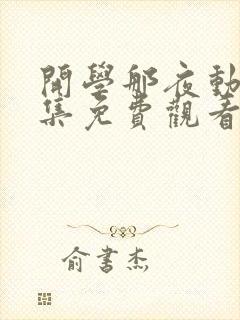 開學那夜動
集免費觀看
俞書杰